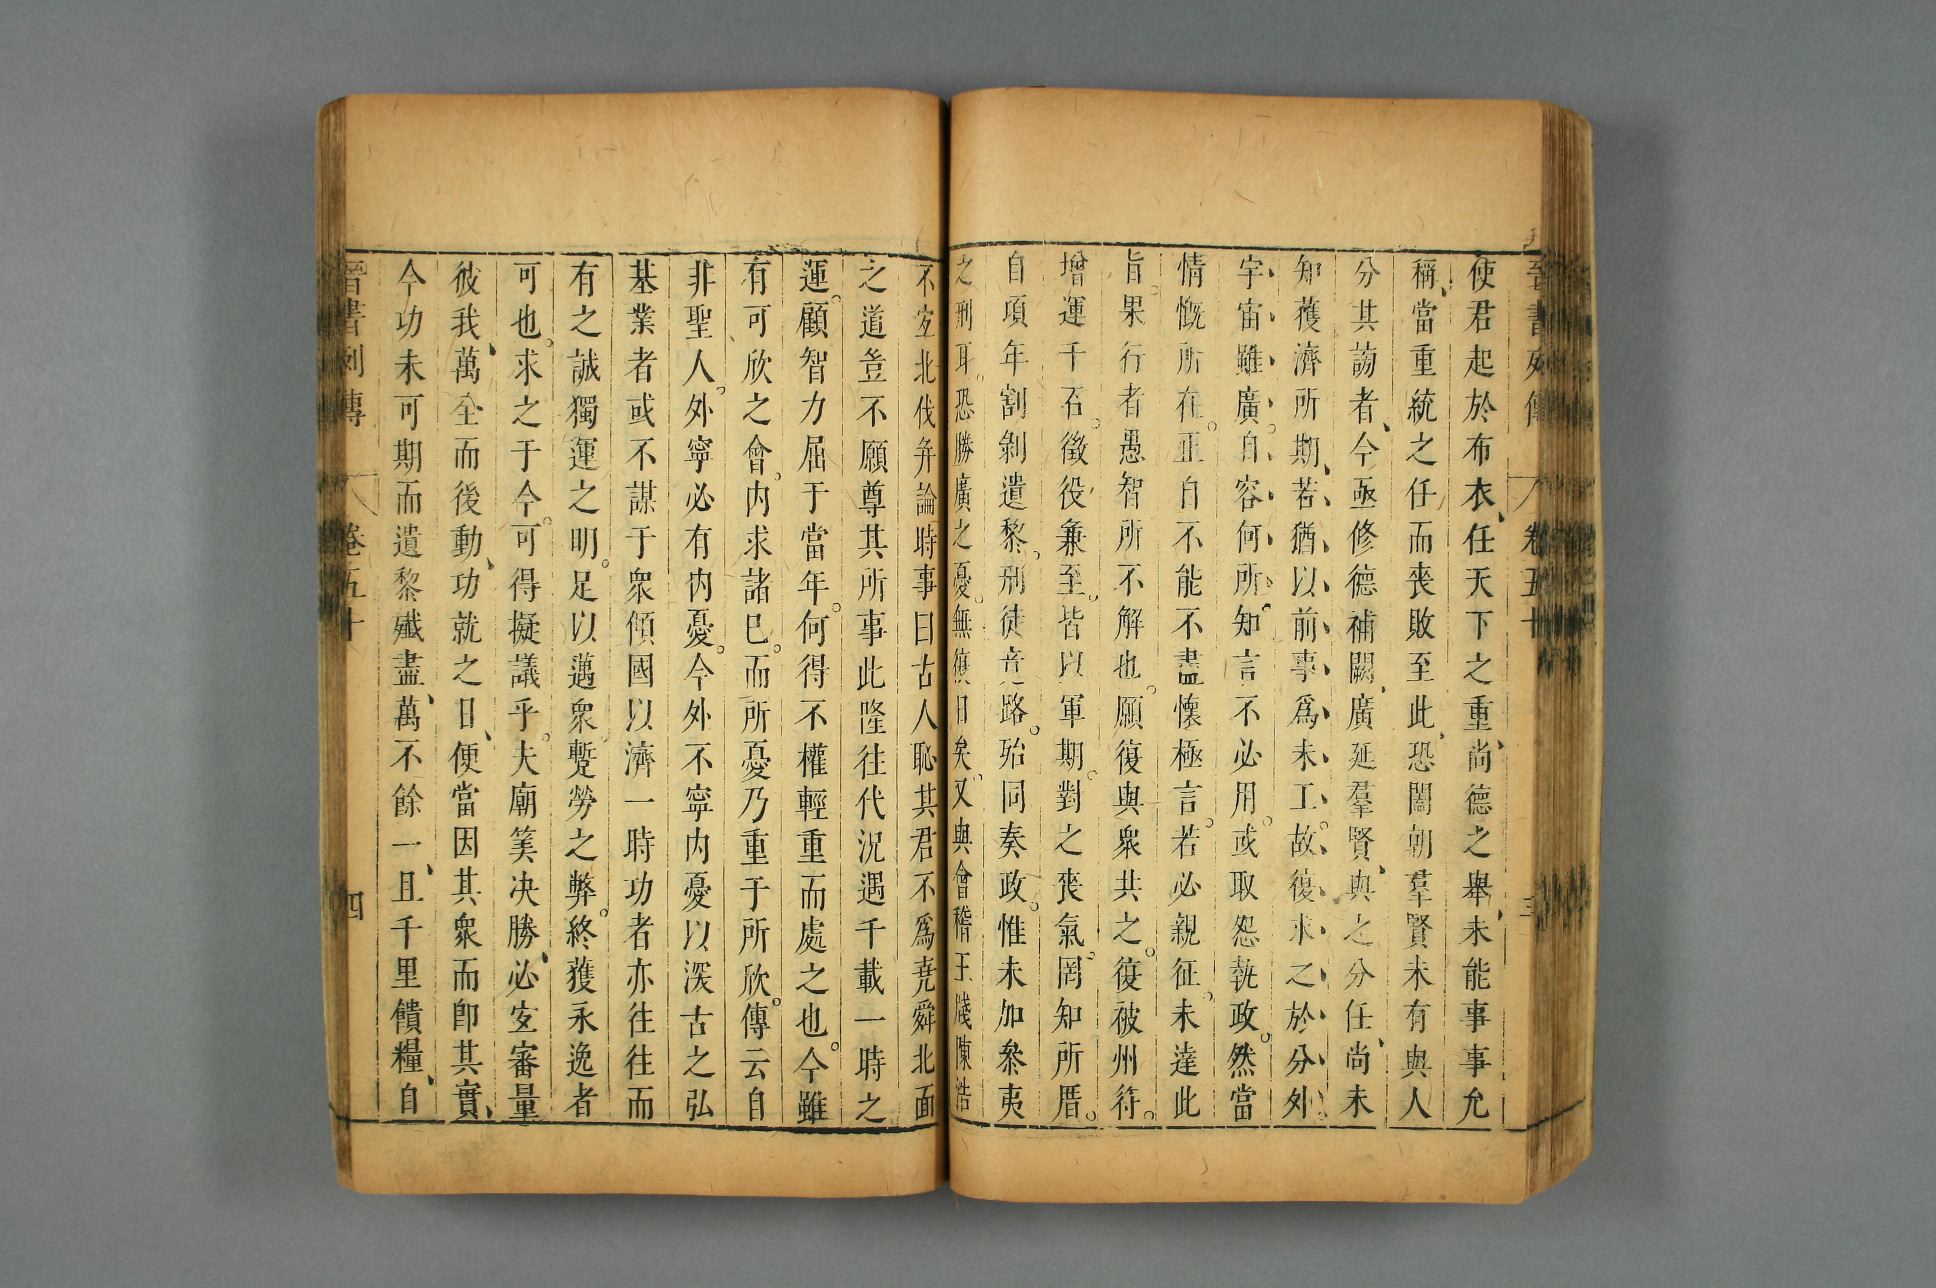 晉書列傳 卷五十 三
使君起於布衣任天下之重尚德之舉未能事事允
稱當重統之任而喪敗至此恐闔朝羣賢未有與人
分其謗者今亟修德補闕廣延羣賢與之分任尚未
知獲濟所期若猶以前事爲未工故復求之於分外
宇宙雖廣自容何所知言不必用或取怨執政然當
情慨所在正自不能不盡懷極言若必親征未達此
旨果行者愚智所不解也願復與衆共之復被州符
增運千石徵役兼至皆以軍期對之喪氣罔知所厝
自項年割剝遺黎刑徒竟路殆同奏政惟未加參夷
之刑耳恐勝廣之憂無復日矣又與會稽王牋陳浩
不宐北伐并論時事曰古人恥其君不爲堯舜北面
之道豈不願尊其所事比隆往代況遇千載一時之
運顧智力屈于當年何得不權輕重而處之也今雖
有可欣之會內求諸已而所憂乃重于所欣傳云自
非聖人外寧必有內憂今外不寧內憂以深古之弘
基業者或不謀于衆傾國以濟一時功者亦往往而
有之誠獨運之明足以邁衆蹔勞之弊終獲永逸者
可也求之于今可得擬議乎夫廟筭决勝必宐審量
彼我萬全而後動功就之日便當因其衆而卽其實
今功未可期而遺黎殲盡萬不餘一且千里饋糧自
晉書列傳 卷五十 四